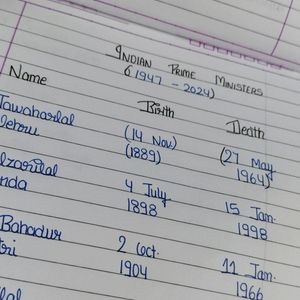 INDIAN PRIME MINISTERS
(1947 - 2024)
Name Birth Death
Jawaharlal (14 Nov) (27 May
Nehru (1889) 1964)
lzarilal 4 July 15 Jan.
nda 1898 1998
Bahadur 2 Oct. 11 Jan.
tri 1904 1966